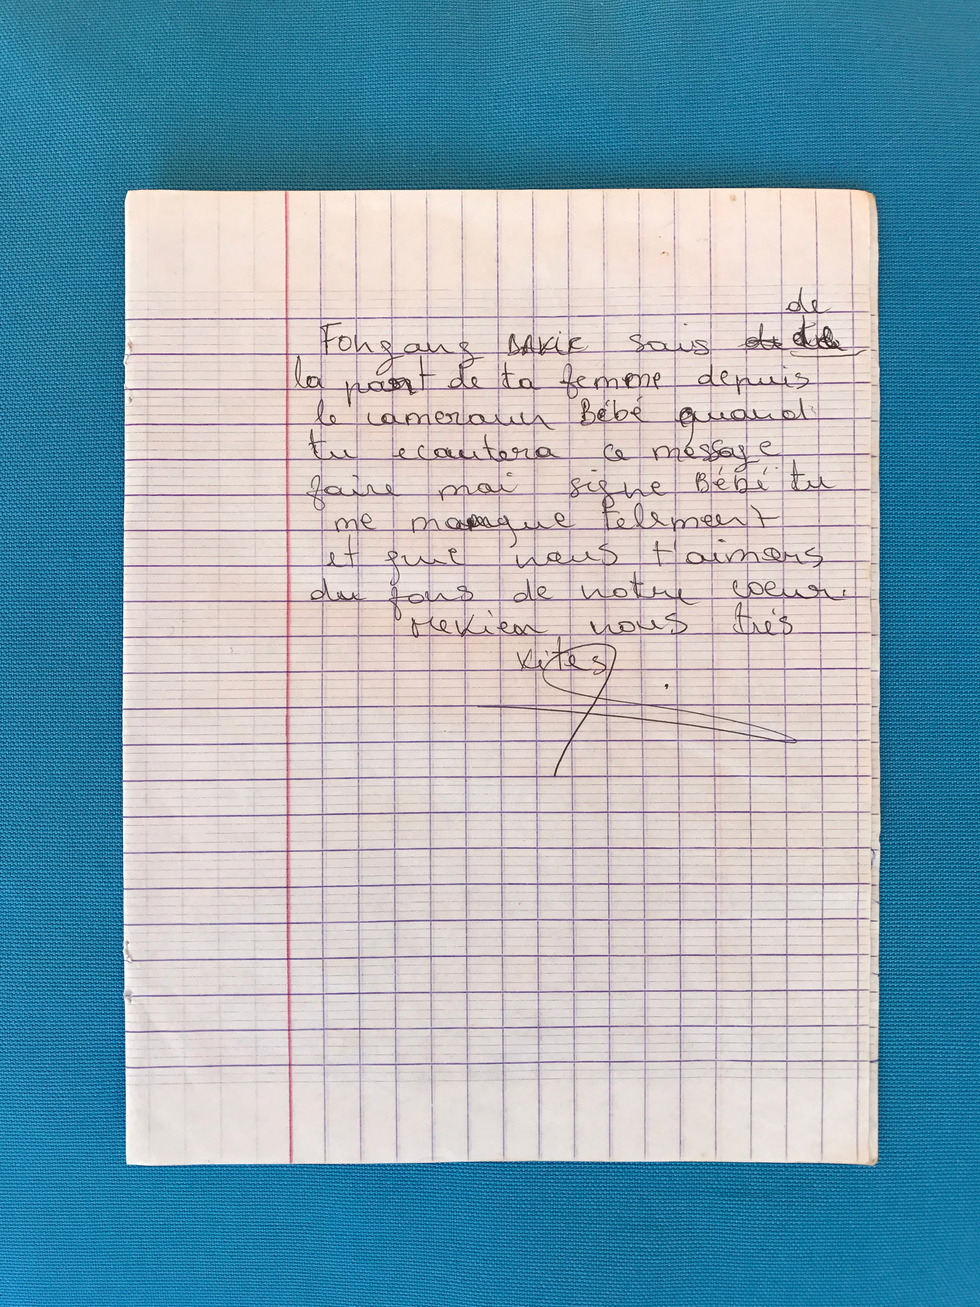 de
Fongang DAVIE sais
la part de ta femme depuis
le cameroun Bébé quand
tu ecoutera ce message
faire moi signe Bébé tu
me manque telement
et que nous t'aimons
du fons de notre coeur.
revien nous très
vites